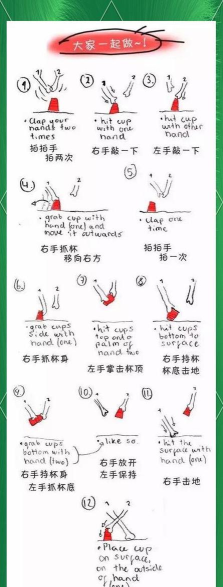 大家一起做~!
1
2
①
• Clap your
hands two
times
拍拍手
拍两次
②
• hit cup
with one
hand
右手敲一下
③
• hit cup
with other
hand
左手敲一下
④
• grab cup with
hand (one) and
move it outwards
右手抓杯
移向右方
⑤
• clap one
time
拍拍手
拍一次
⑥
• grab cups
side with
hand (one)
右手抓杯身
⑦
• hit cups
top on a
palm of
hand two
左手掌击杯顶
⑧
• hit cups
bottom to
surface
右手持杯
杯底击地
⑨
• grab cups
bottom with
hand (two)
右手持杯身
左手抓杯底
⑩
like so
右手放开
左手保持
⑪
• hit the
surface with
hand (one)
右手击地
⑫
• Place cup
on surface,
on the outside
of hand
(one)